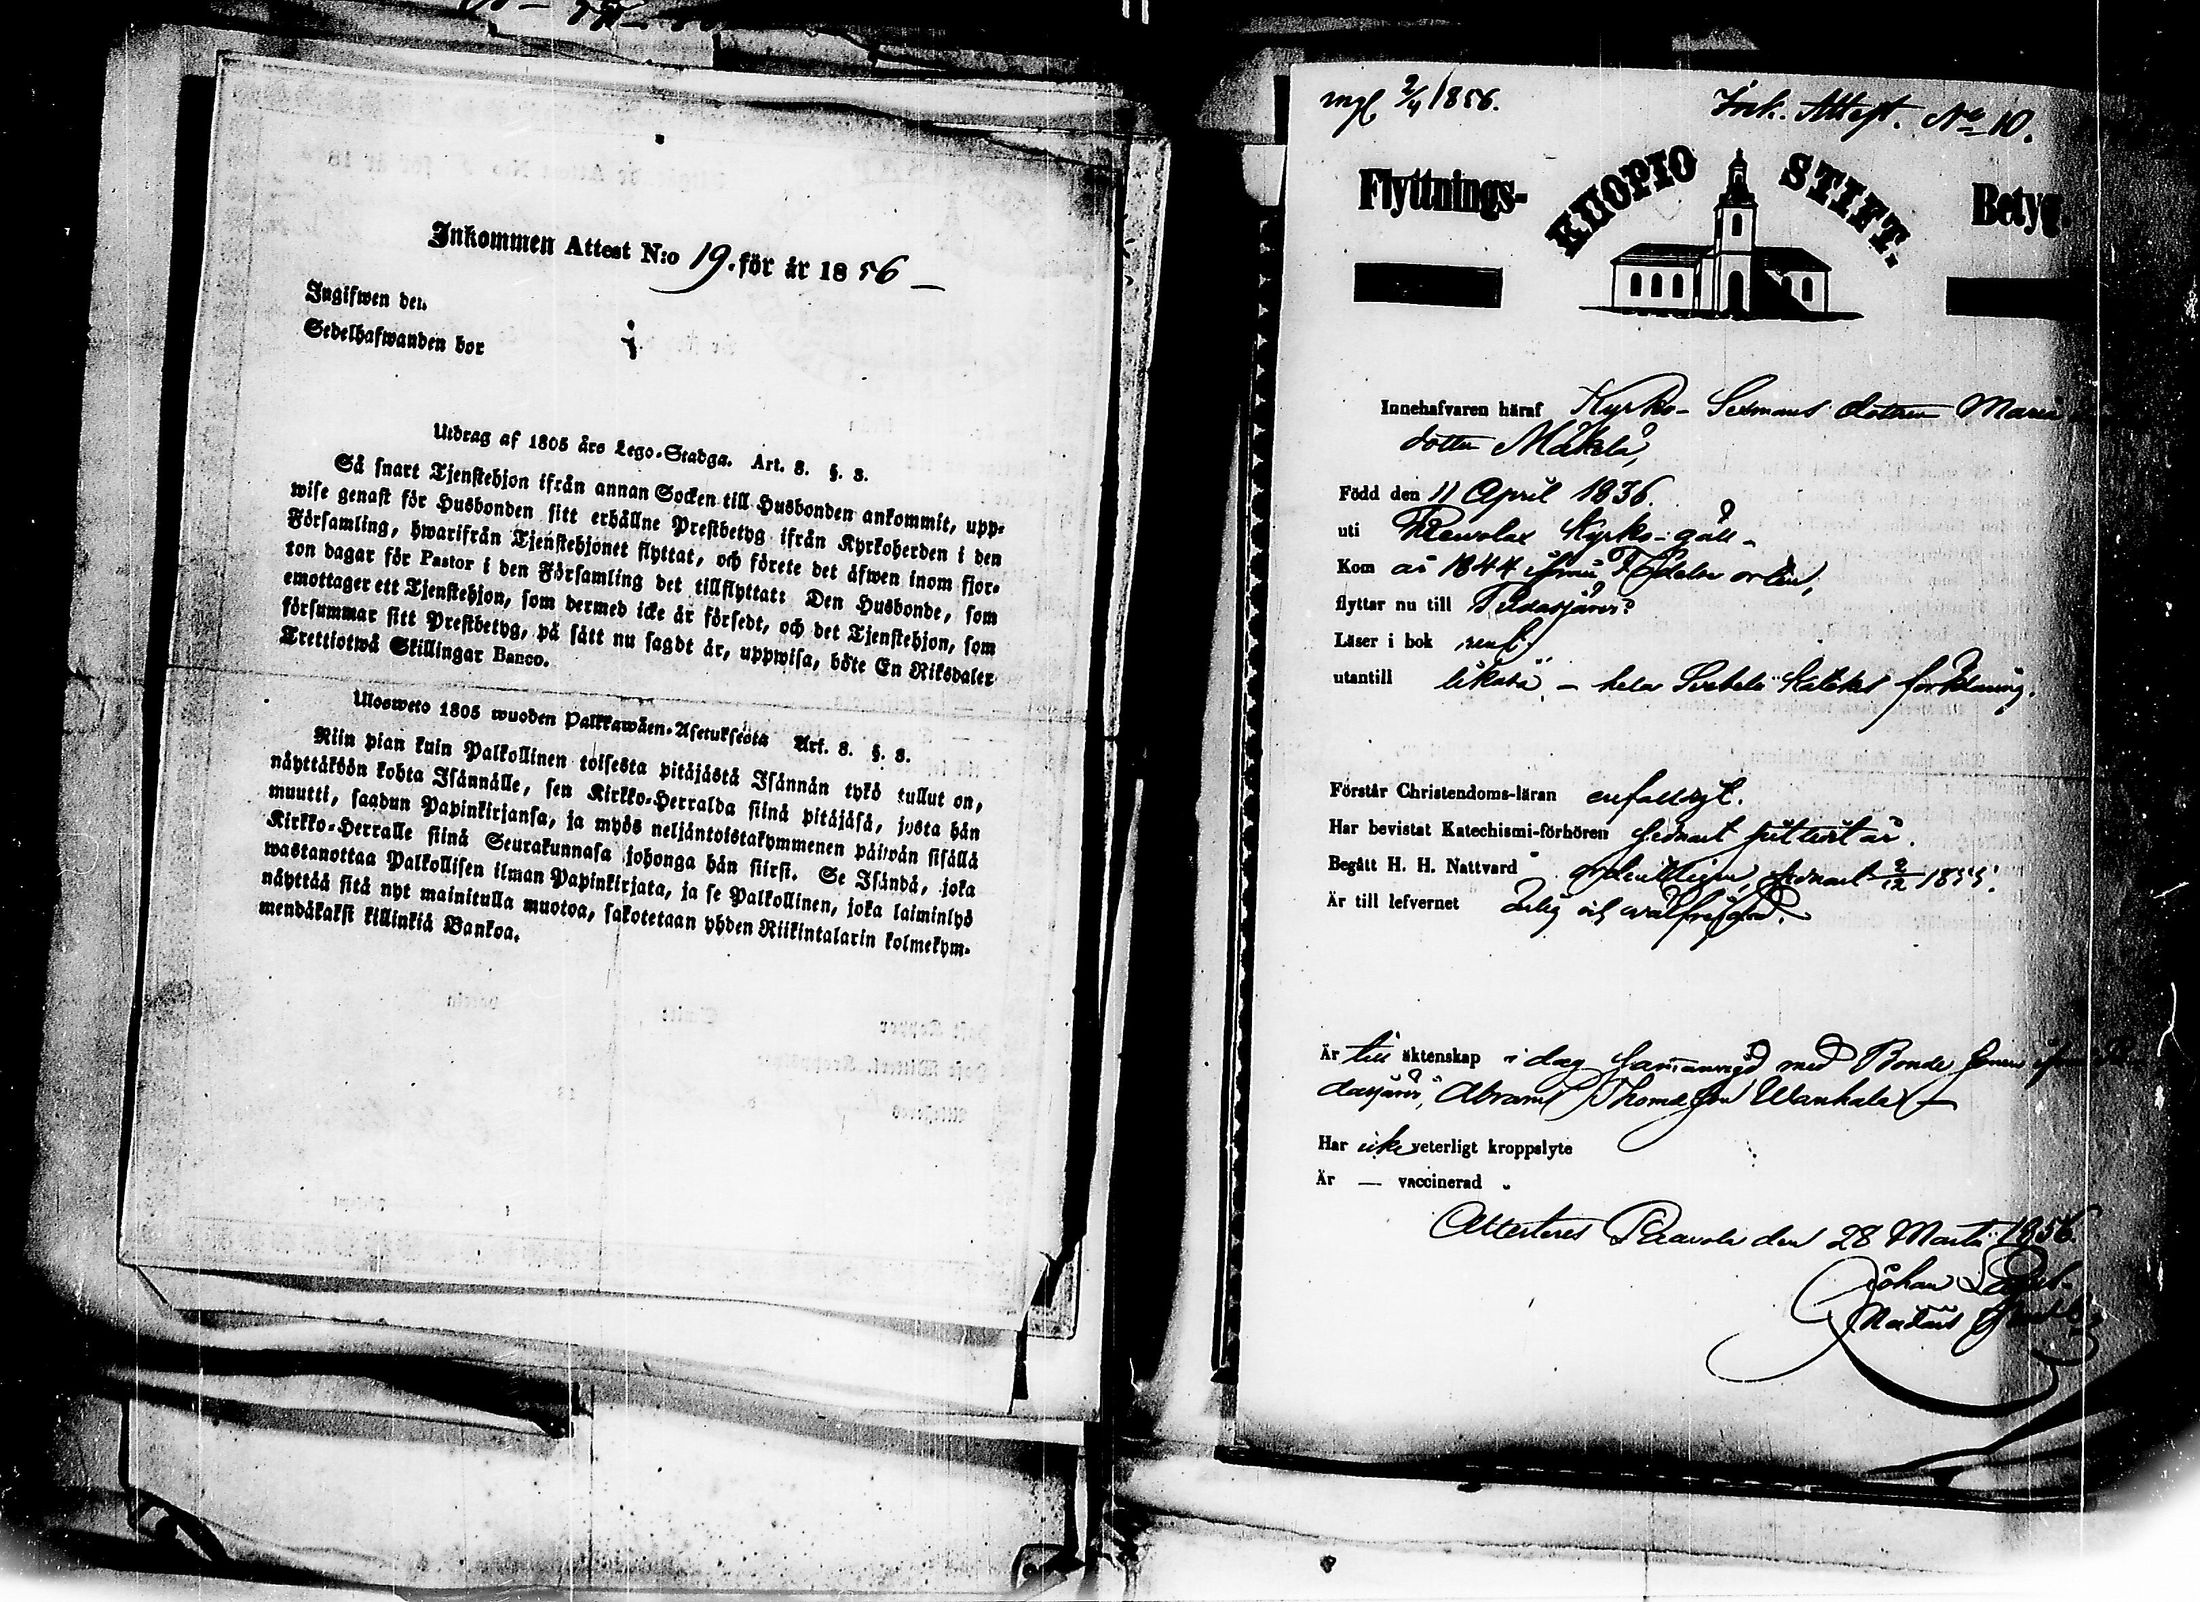 Inkommen Attest N:o 19. för år 1856
Ingifwen den
Sedelhafwanden bor i
Utdrag af 1805 års Lego-Stadga. Art. 8. §. 3.
Så snart Tjenstehjon ifrån annan Socken till Husbonden ankommit, upp-
wise genast för Husbonden sitt erhållne Prestbetyg ifrån Kyrkoherden i den
Församling, hwarifrån Tjenstehjonet flyttat, och förete det äfwen inom fjor-
ton dagar för Pastor i den Församling det tillflyttat: Den Husbonde, som
emottager ett Tjenstehjon, som dermed icke är försedt, och det Tjenstehjon, som
försummar sitt Prestbetyg, på sätt nu sagdt är, uppwisa, böte En Riksdaler
Trettiotwå Skillingar Banco.
Ulosweto 1805 wuoden Palkkawäen-Asetuksesta Art. 8. §. 3.
Niin pian kuin Palkollinen toisesta pitäjästä Isännän tykö tullut on,
näyttäköön kohta Isännälle, sen Kirkko-Herralda siinä pitäjäsä, josta hän
muutti, saadun Papinkirjansa, ja myös neljäntoistakymmenen päiwän sisällä
Kirkko-Herralle siinä Seurakunnasa johonga hän siirsi. Se Isändä, joka
wastanottaa Palkollisen ilman Papinkirjata, ja se Palkollinen, joka laiminlyö
näyttää sitä nyt mainitulla muotoa, sakotetaan yhden Riikintalarin kolmekym-
mendäkaksi killinkiä Bankoa.
2/4 1856.
Ink. Attest. No 10.
Flyttnings- KUOPIO STIFT. Betyg.
Innehafvaren häraf Kyrko- Sexmans dottren Maria
dotter Mäkelä,
Född den 11 April 1836.
uti Rewolax Kyrko-gäll
Kom år 1844 ifrån Födelse orten,
flyttar nu till Pudasjärvi
Läser i bok rent.
utantill likaså - hela Svebelii Kateches förklaring.
Förstår Christendoms-läran enfaldigt.
Har bevistat Katechismi-förhören sednast sistlidit år.
Begått H. H. Nattvard ordentligen, sednast 2/12 1855.
Är till lefvernet ärlig och wälfrejdad.
Är till äktenskap i dag sammanvigd med Bonde sonen ifrån Pu
dasjärvi, Abram Thomasson Wanhala
Har icke veterligt kroppslyte
Är — vaccinerad
Attesteras Paavola den 28 Martii 1856.
Johan